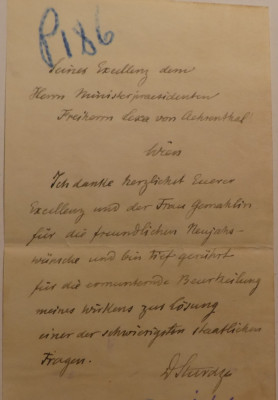 P 186
Seiner Exzellenz dem
Herrn Ministerpraesidenten
Freiherrn von Aehrenthal
Wien
Ich danke herzlichst Euerer
Exzellenz und der Frau Gemahlin
für die freundlichen Neujahrs-
wünsche und bin tief gerührt
für die ermunternde Beurteilung
meines Wirkens zur Lösung
einer der schwierigsten staatlichen
Fragen.
D Sturdza